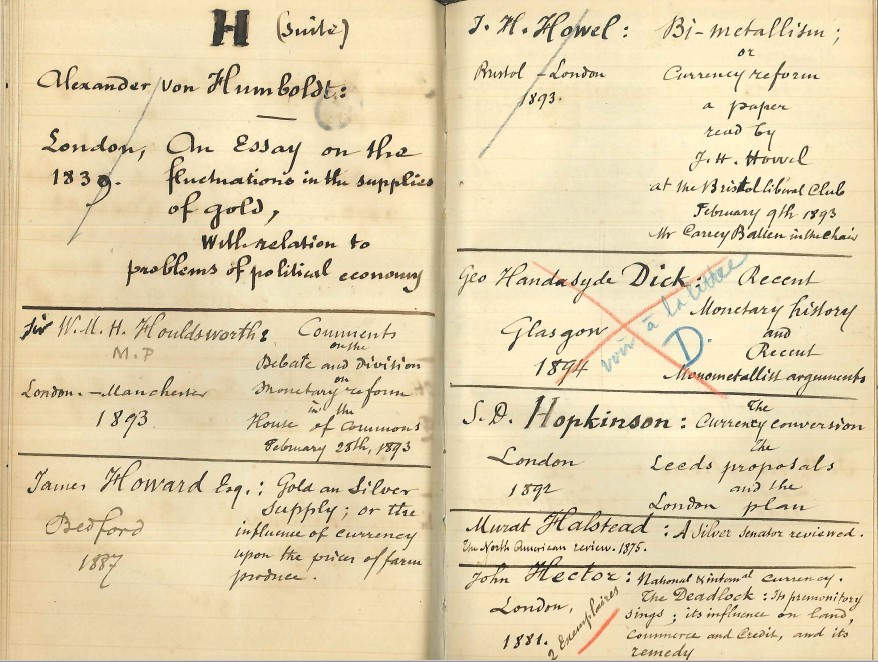 H (suite)
Alexander von Humboldt:
London, An Essay on the
1839. fluctuations in the supplies
of gold,
With relation to
problems of political economy
Sir W. H. Houldsworth: Comments
M.P on the
Debate and Division
on
London. - Manchester Monetary reform
in the
1893 House of Commons
February 28th, 1893
James Howard Esq.: Gold an Silver
Supply; or the
Bedford influence of currency
1887 upon the prices of farm
produce.
J. H. Howel: Bi-metallism;
or
Bristol - London Currency reform
1893. a paper
read by
J. H. Howel
at the Bristol liberal Club
February 9th 1893
Mr Carrey Batten in the chair
Geo Handasyde Dick: Recent
Monetary history
Glasgow and
Recent
1894 Monometallist arguments
voir à la lettre
D.
S. D. Hopkinson: The
Currency conversion
The
London Leeds proposals
1892 and the
London plan
Murat Halstead: A Silver senator reviewed.
The North American review. 1875.
John Hector: National & internal currency.
The Deadlock: Its premonitory
London, sings; its influence on land,
1881. Commerce and Credit, and its
remedy
2 Exemplaires